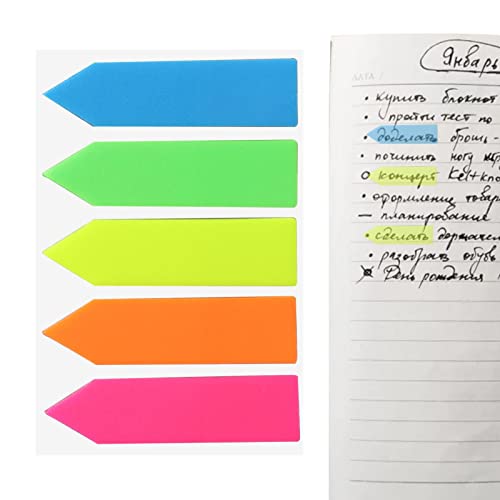 Январь
ДАТА /
• купить блокнот
• пройти тест по
• доделать брошь –
• починить ногу
о концерт Ket+кно
• оформление товар
— планирование
• сделать держател
• разобрать обувь
День рождения